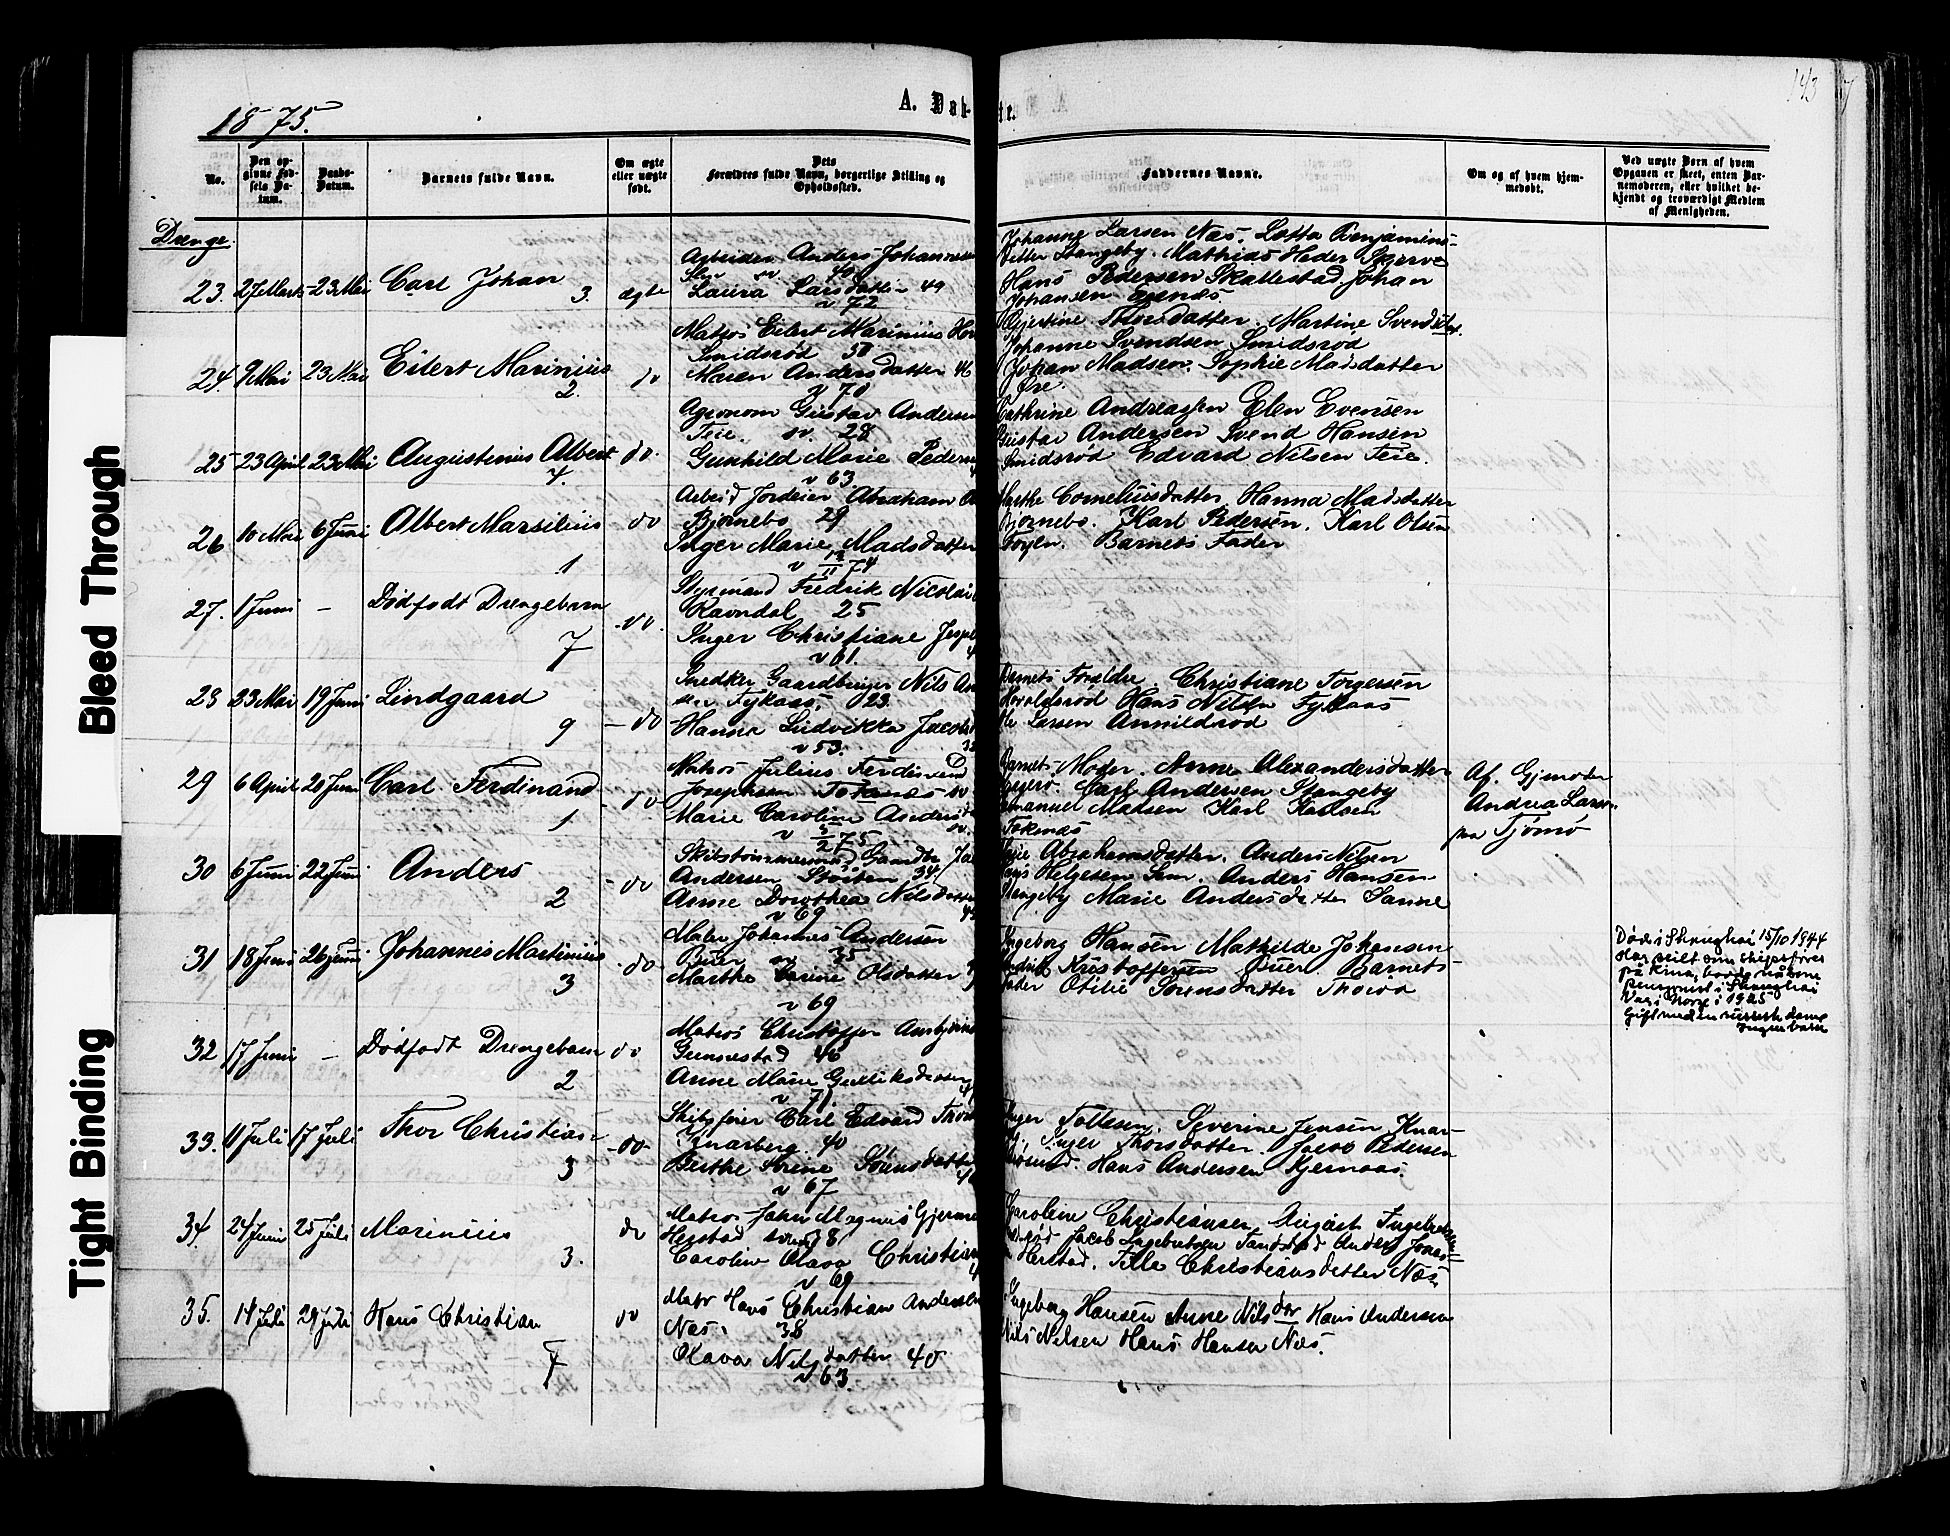 1875.
A. Døb-
te.
143
No.
Den op-
givne Fød-
sels Da-
tum.
Daabs-
Datum.
Barnets fulde Navn.
Om ægte
eller uægte
født.
Dets
Forældres fulde Navn, borgerlige Stilling og
Opholdssted.
Faddernes Navne.
Om og af hvem hjem-
medøbt.
Ved uægte Børn af hvem
Opgaven er skeet, enten Bar-
nemoderen, eller hvilket be-
kjendt og troværdigt Medlem
af Menigheden.
Drenge.
23. 27 Marts 23 Mai Carl Johan 3. ægte
Arbeider Anders Johannesen
Laura Larsdatter 49
v 72
Johanne Larsen Næs. Lotta Benjamins-
datter Stangeby. Mathias Heder
Hans Pedersen Skallestad. Johan
Johansen
24. 9 Mai 23 Mai Eilert Marinius 2. do
Matros Eilert Marinius
Smidsrød 50
Maren Andersdatter 46
v 70
Gjertine Thorsdatter. Martine Svendsdat.
Johanne Svendsen Smidsrød
Johan Madsen. Sophie Madsdatter
Øre.
25 23 April 23 Mai Augustinius Albert 4. do.
Agronom Gustav Andersen
Teie. 28
Gunhild Marie Peders
v 63.
Cathrine Andreassen Elen Evensen
Gustav Andersen Svend Hansen
Smidsrød Edvard Nilsen Teie.
26 10 Mai 6 Juni Albert Marsilius 1 do
Arbeid Jordeier Abraham
Bjørnebo 29
Inger Marie Madsdatter
v 74
Marthe Corneliusdatter. Hanna Madsdatter
Bjørnebo. Karl Pedersen. Karl Olsen
Føyen. Barnets Fader
27. 1 Juni - Dødfødt Drengebarn 7 do.
Styrmand Fredrik Nicolai
Ravndal 25
Inger Christiane
v 61.
28 23 Mai 19 Juni Lindgaard 9 - do
Snedker Gaardbruger Nils
Fykaas. 23.
Hanna Ludvikka Jacobs
v 53.
Barnets Forældre. Christiane Torgersen
Haraldsrød Hans Nilsen Fykaas
Ole Larsen Anmildrød
29 6 April 20 Juni Carl Ferdinand 1 - do -
Matros Julius Ferdinand
Josephsen Tokenæs
Marie Caroline Anders
v 75
Barnets Moder. Anne Alexandersdatter
Carl Andersen Stangeby
Emanuel Madsen Karl Karlsen
Tokenæs
Af. Gjmoder
Andrea Larsen
paa Tjømø
30 6 Juni 22 Juni Anders 2 - do
Skibstømmermand
Andersen Støiten 34
Anne Dorothea Nilsdatter
v 69
Abrahamsdatter. Anders Nilsen
Helgesen Sem. Anders Hansen
Stangeby Marie Andersdatter Sanne
31 18 Juni 26 Juni Johannes Martinius 3 - do -
Johannes Andersen
35
Marthe Karine Olsdatter
v 69
Ingeborg Hansen Mathilde Johansen
Fredrik Kristoffersen Buer Barnets
Fader Otilie Sørensdatter
Død i Shanghai 15/10 1944
Har seilt som skipsfører
på Kina, bodde
pensjonist i Shanghai
Var i Norge i 1925
Gift med en russisk dame
Ingen barn
32 17 Juni - Dødfødt Drengebarn 2 do
Matros Christoffer
Gunnestad 46
Anne Marie Gulliksdatter
v 71.
33. 11 Juli 17 Juli Thor Christian 3 - do -
Skibsfører Carl Edvard
Knarberg. 40
Berthe Serine Sørensdatter
v 67
Inger Tollesen. Severine Jensen Knar-
berg. Inger Thorsdatter. Jacob Pedersen
Hans Andersen Gjernaas.
34. 24 Juni 25 Juli Marinius 3. do
Matros Johan Magnus
Herstad 38
Caroline Olava Christian
v 69
Karoline Christiansen August Ingebretsen
Jacob Ingebretsen Tandstad Anders Jonas-
sen Herstad. Tille Christiansdatter Næs
35. 14 Juli 29 Juli Hans Christian 7 do
Matr Hans Christian Andersen
Næs. 38
Olava Nilsdatter 40
v 63.
Ingeborg Hansen Anne Nilsdtr Hans Andersen
Nils Nilsen Hans Hansen Næs.
Bleed Through
Tight Binding